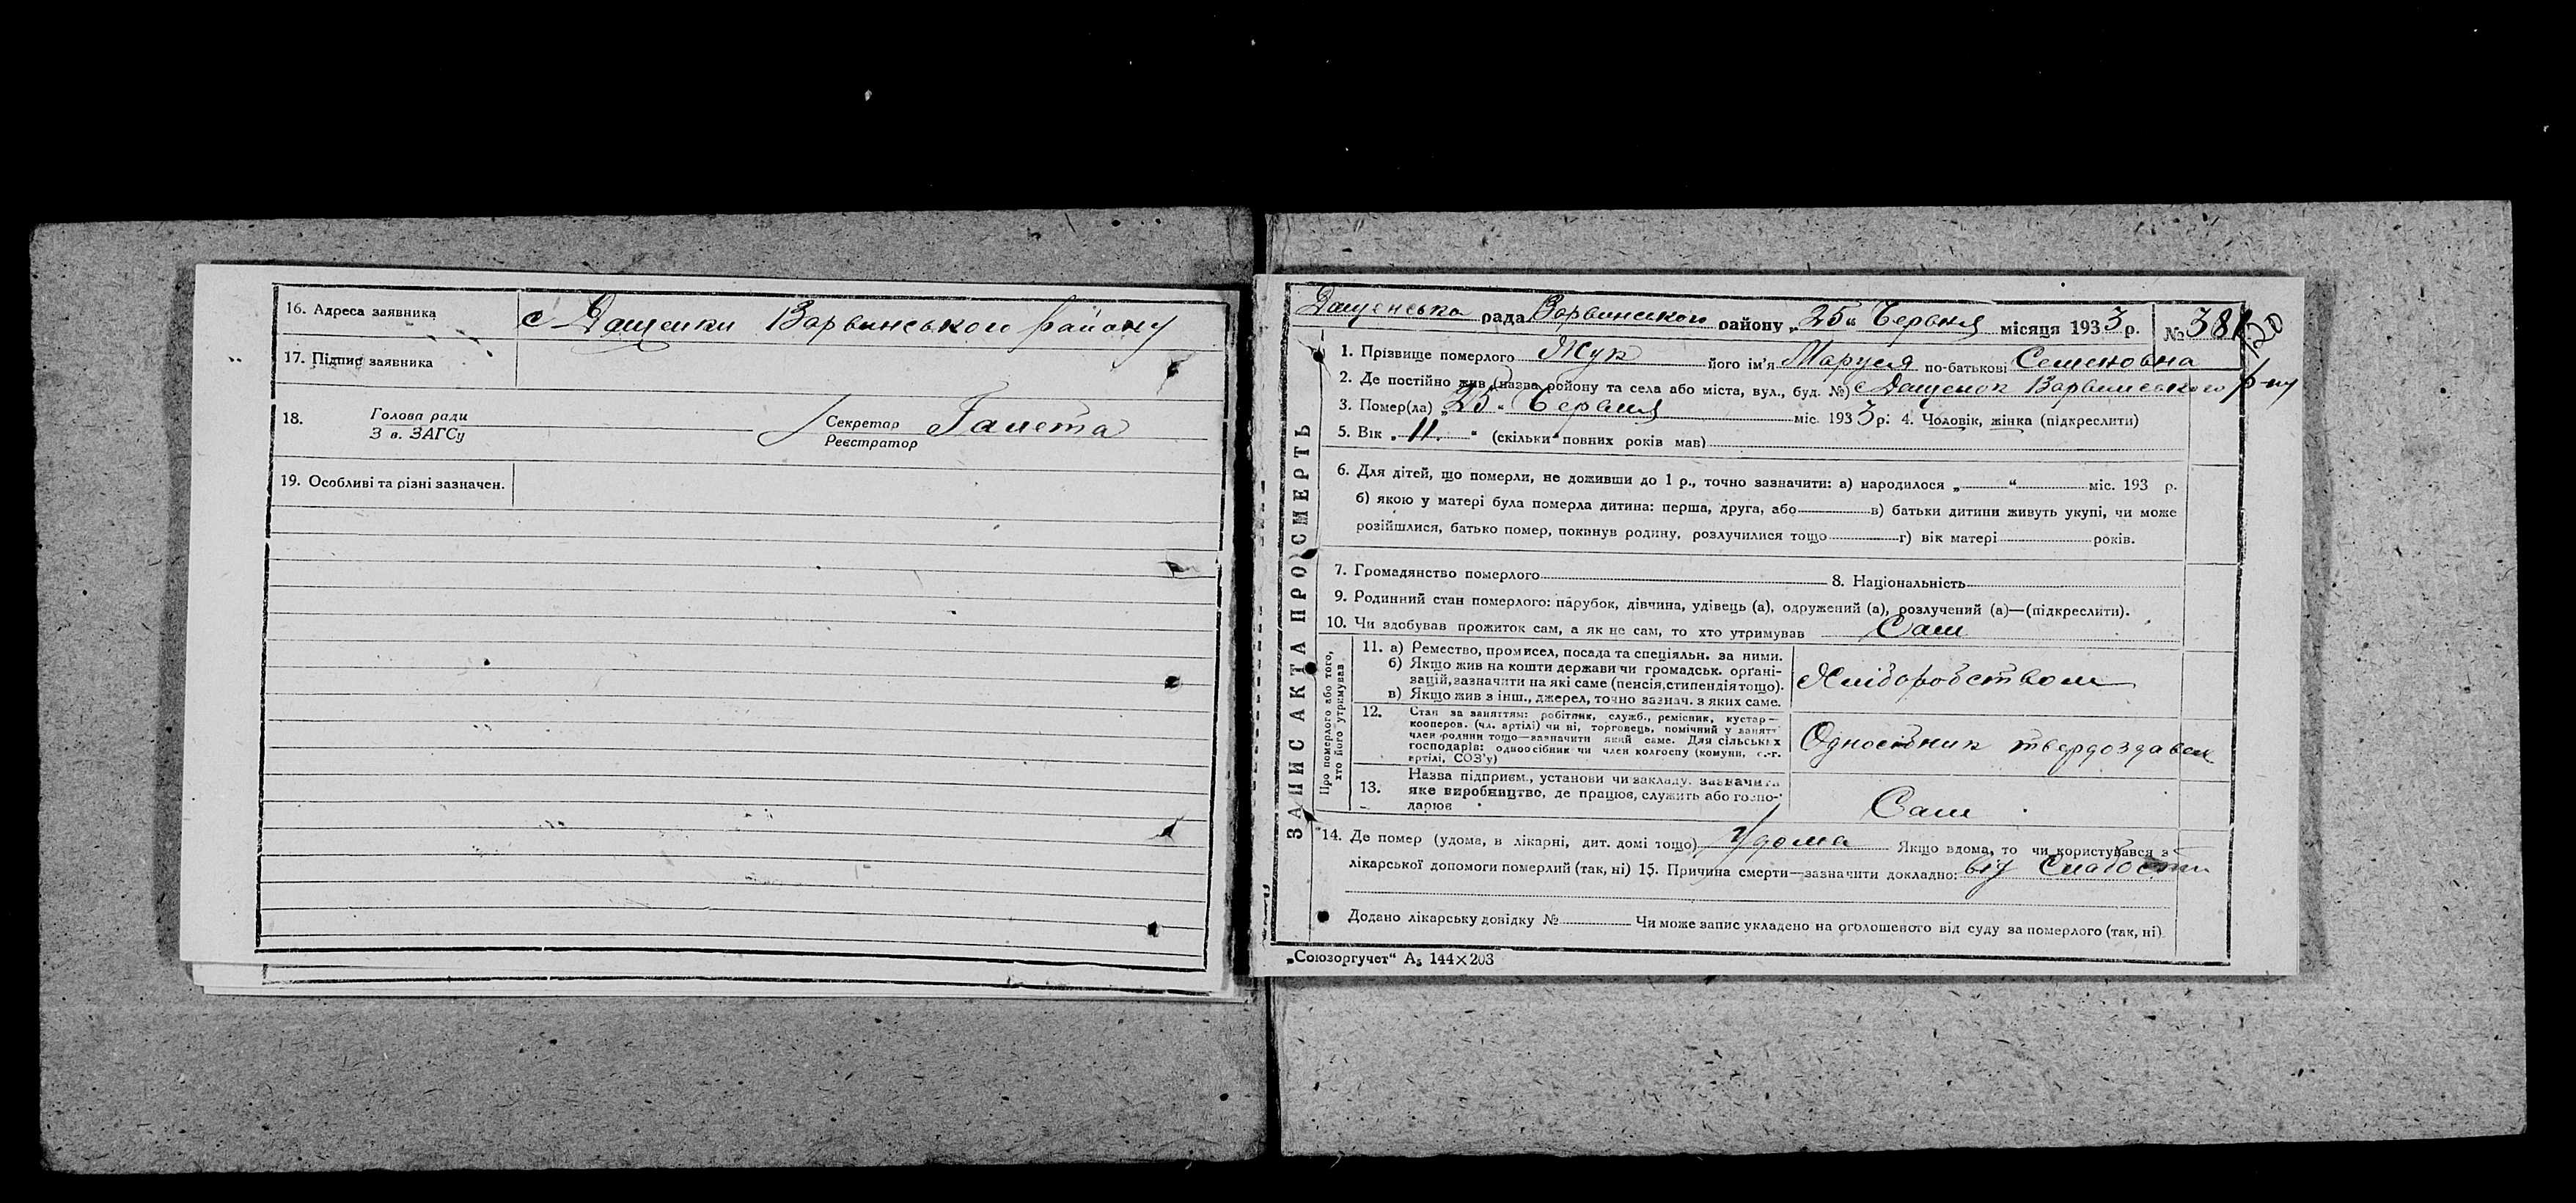 16. Адреса заявника с Дащенки Варвинського району
17. Підпис заявника
18. Голова ради
З в. ЗАГСу
Секретар
Реєстратор
Галета
19. Особливі та різні зазначен.
Дащенська рада Варвинского району „25“ Червня місяця 1933 р. № 381
120
ЗАПИС АКТА ПРО СМЕРТЬ
1. Прізвище померлого Жук його ім'я Маруся по-батькові Семеновна
2. Де постійно жив (назва району та села або міста, вул., буд. №) с Дащенок Варвинського р-ну
3. Помер(ла) „25“ Червня міс. 1933 р. 4. Чоловік, жінка (підкреслити)
5. Вік „11.“ (скільки повних років мав)
6. Для дітей, що померли, не доживши до 1 р., точно зазначити: а) народилося „ “ міс. 193 р.
б) якою у матері була померла дитина: перша, друга, або в) батьки дитини живуть укупі, чи може
розійшлися, батько помер, покинув родину, розлучилися тощо г) вік матері років.
7. Громадянство померлого 8. Національність
9. Родинний стан померлого: парубок, дівчина, удівець (а), одружений (а), розлучений (а)—(підкреслити).
10. Чи здобував прожиток сам, а як не сам, то хто утримував Сам
Про померлого або того,
хто його утримував
11. а) Ремество, промисел, посада та спеціяльн. за ними.
б) Якщо жив на кошти держави чи громадськ. органі-
зацій, зазначити на які саме (пенсія, стипендія тощо).
в) Якщо жив з інш., джерел, точно зазнач. з яких саме.
Хліборобством
12. Стан за заняттям: робітник, служб., ремісник, кустар—
кооперов. (чл. артілі) чи ні, торговець, помічний у занятт.
член родини тощо—зазначити який саме. Для сільських
господарів: одноосібник чи член колгоспу (комуни, с.-г.
артілі, СОЗ'у)
Одноосібник твердоздавец
13. Назва підприєм., установи чи закладу, зазначити
яке виробництво, де працює, служить або госпо-
дарює
Сам
14. Де помер (удома, в лікарні, дит. домі тощо) Удома Якщо вдома, то чи користувався з
лікарської допомоги померлий (так, ні) 15. Причина смерти—зазначити докладно: від Слабости
Додано лікарську довідку № Чи може запис укладено на оголошеного від суду за померлого (так, ні)
„Союзоргучет“ А₅ 144×203